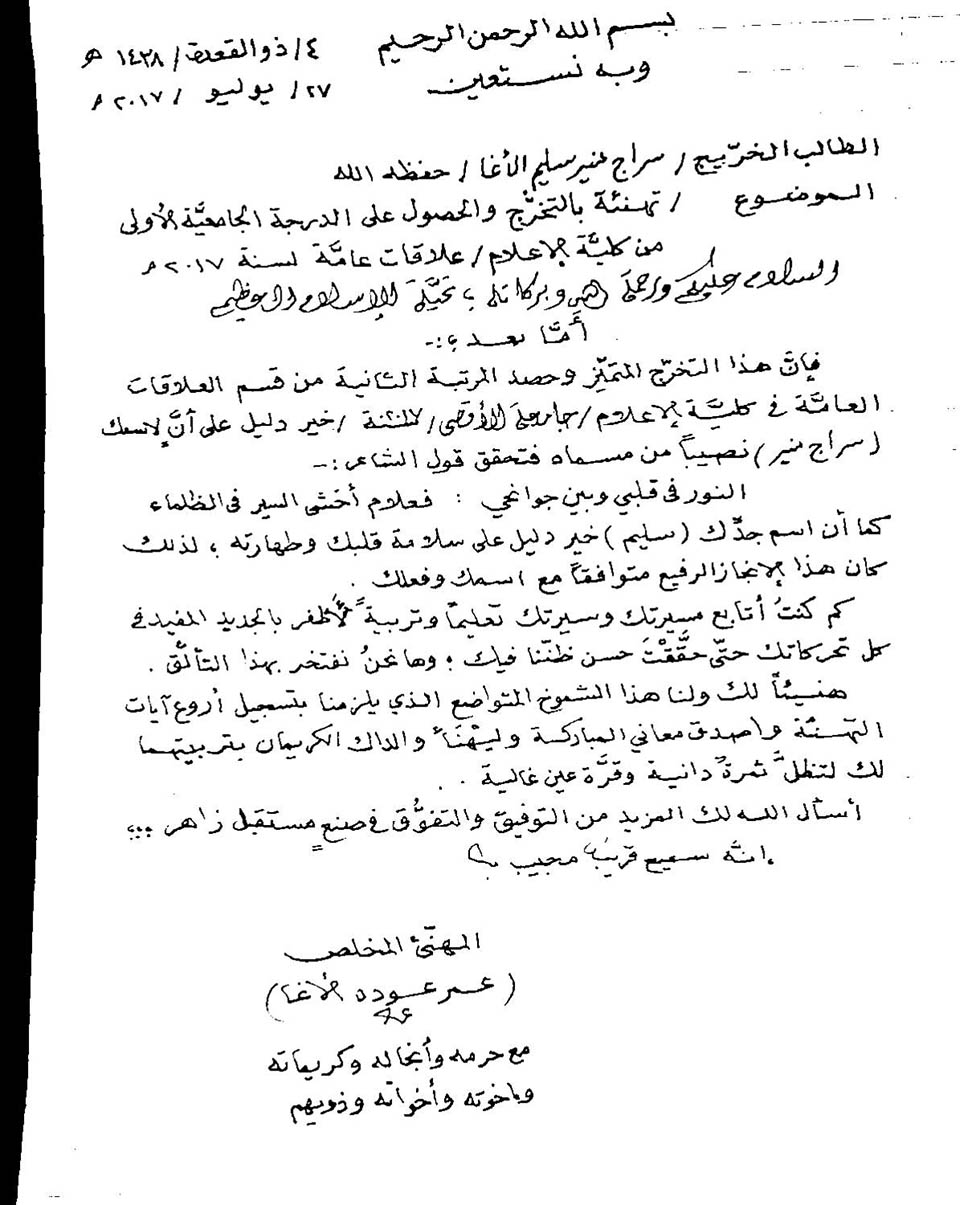 بسم الله الرحمن الرحيم
٤/ ذو القعدة/ ١٤٣٨ هـ
وبه نستعين
٢٧/ يوليو / ٢٠١٧ م
الطالب الخرّيج/ سراج منير سليم الأغا/ حفظه الله
الموضوع / تهنئة بالتخرّج والحصول على الدرجة الجامعيَّة الأولى
من كليَّة الإعلام/ علاقات عامَّة لسنة ٢٠١٧ م
السلام عليكم ورحمة الله وبركاته ؛ تحيَّة الإسلام العظيم
أمَّا بعد ؛:-
فإنَّ هذا التخرّج المتميّز وحصد المرتبة الثانية من قسم العلاقات
العامَّة في كليَّة الإعلام/ جامعة الأقصى/ خير دليل على أنَّ لاسمك
(سراج منير) نصيباً من مسماه فتحقق قول الشاعر:-
النور في قلبي وبين جوانحي : فعلام أخشى السير في الظلماء
كما أن اسم جدّك (سليم) خير دليل على سلامة قلبك وطهارته ؛ لذلك
كان هذا الإنجاز الرفيع متوافقاً مع اسمك وفعلك .
كم كنتُ أتابع مسيرتك وسيرتك تعليماً وتربيةً لأظفر بالجديد المفيد في
كل تحركاتك حتّى حقَّقْتَ حسن ظنّنا فيك ؛ وها نحنُ نفتخر بهذا التألّق .
هنيئاً لك ولنا هذا الشموخ المتواضع الذي يلزمنا بتسجيل أروع آيات
التهنئة وأصدق معاني المباركة وليهْنَأ والداك الكريمان بتربيتهما
لك لتظلَّ ثمرةً دانية وقرَّة عين غالية .
أسأل الله لك المزيد من التوفيق والتفوُّق في صنعِ مستقبل زاهر ...
إنَّه سميع قريب مجيب ؛؛
المهنّئ المخلص
(عمر عوده الأغا)
مع حرمه وأنجاله وكريماته
وإخوته وأخواته وذويهم